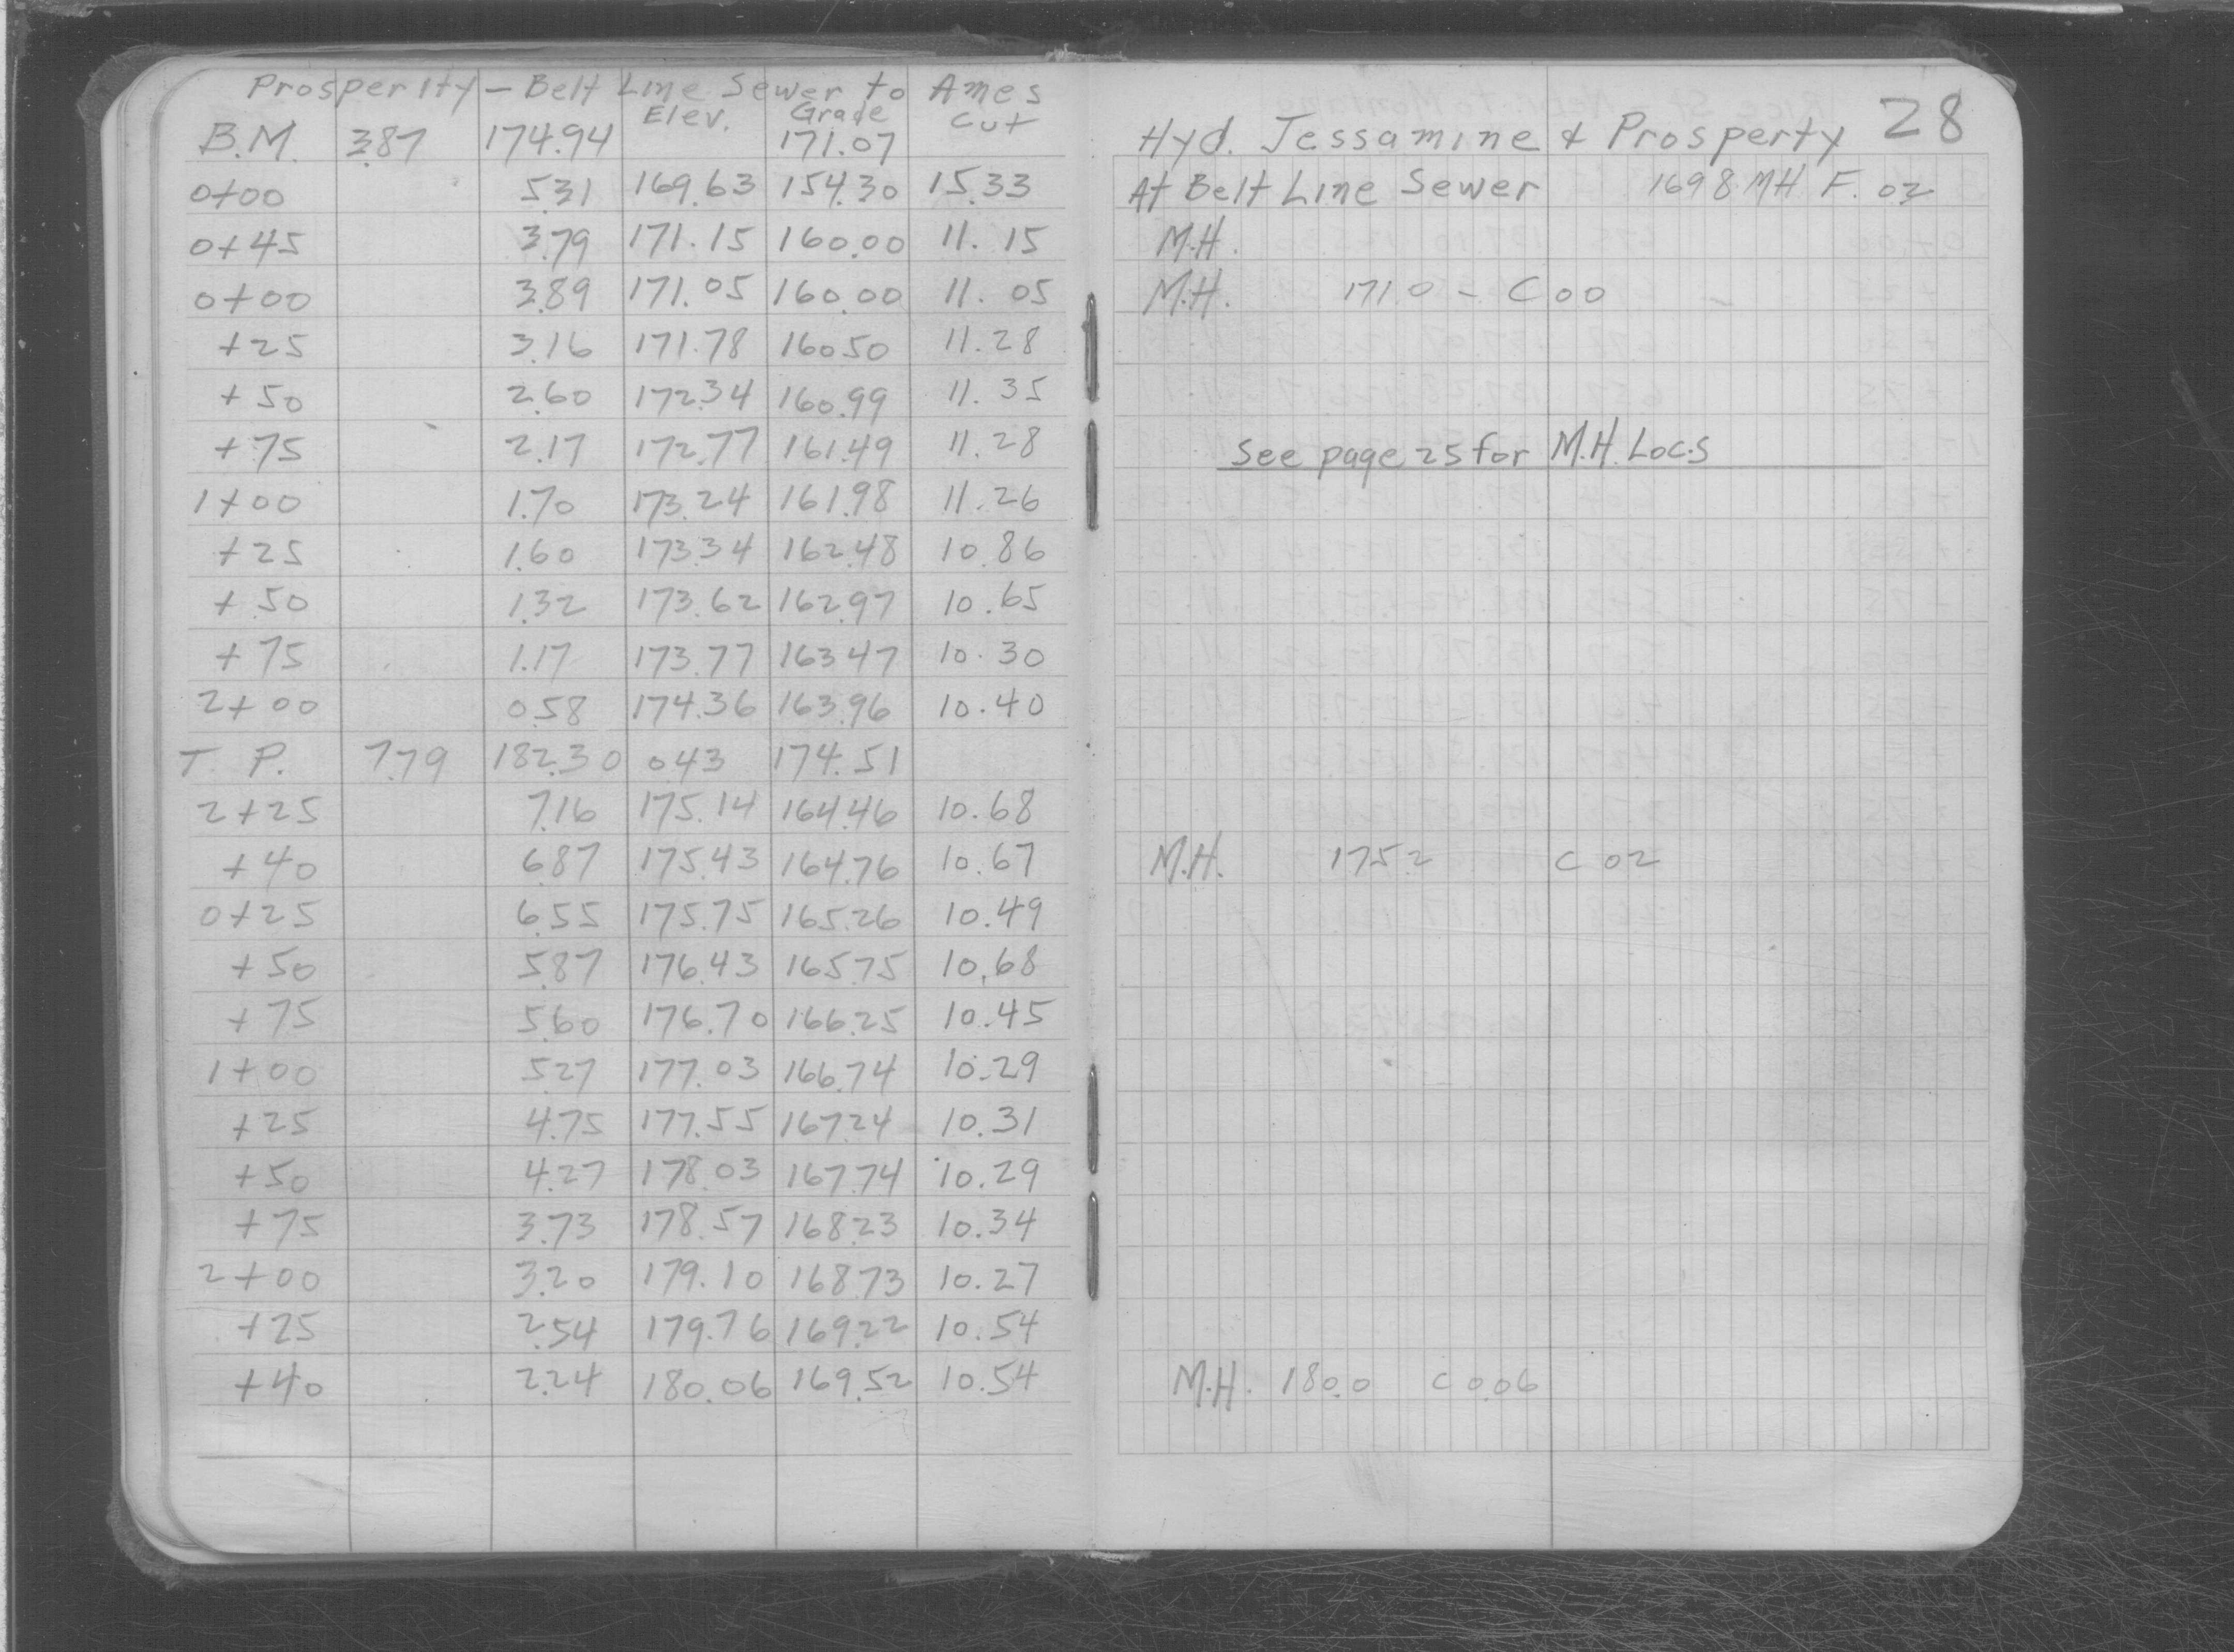 Prosperity - Belt Line Sewer to Ames
Elev. Grade Cut
B.M. 3.87 174.94 171.07
0+00 5.31 169.63 154.30 15.33
0+45 3.79 171.15 160.00 11.15
0+00 3.89 171.05 160.00 11.05
+25 3.16 171.78 160.50 11.28
+50 2.60 172.34 160.99 11.35
+75 2.17 172.77 161.49 11.28
1+00 1.70 173.24 161.98 11.26
+25 1.60 173.34 162.48 10.86
+50 1.32 173.62 162.97 10.65
+75 1.17 173.77 163.47 10.30
2+00 0.58 174.36 163.96 10.40
T.P. 7.79 182.30 0.43 174.51
2+25 7.16 175.14 164.46 10.68
+40 6.87 175.43 164.76 10.67
0+25 6.55 175.75 165.26 10.49
+50 5.87 176.43 165.75 10.68
+75 5.60 176.70 166.25 10.45
1+00 5.27 177.03 166.74 10.29
+25 4.75 177.55 167.24 10.31
+50 4.27 178.03 167.74 10.29
+75 3.73 178.57 168.23 10.34
2+00 3.20 179.10 168.73 10.27
+25 2.54 179.76 169.22 10.54
+40 2.24 180.06 169.52 10.54
28
Hyd. Jessamine & Prosperty
At Belt Line Sewer 169.8 MH F. 02
M.H.
M.H. 171.0 - C 00
See page 25 for M.H. Locs
M.H. 175.2 C 02
M.H. 180.0 C 0.06